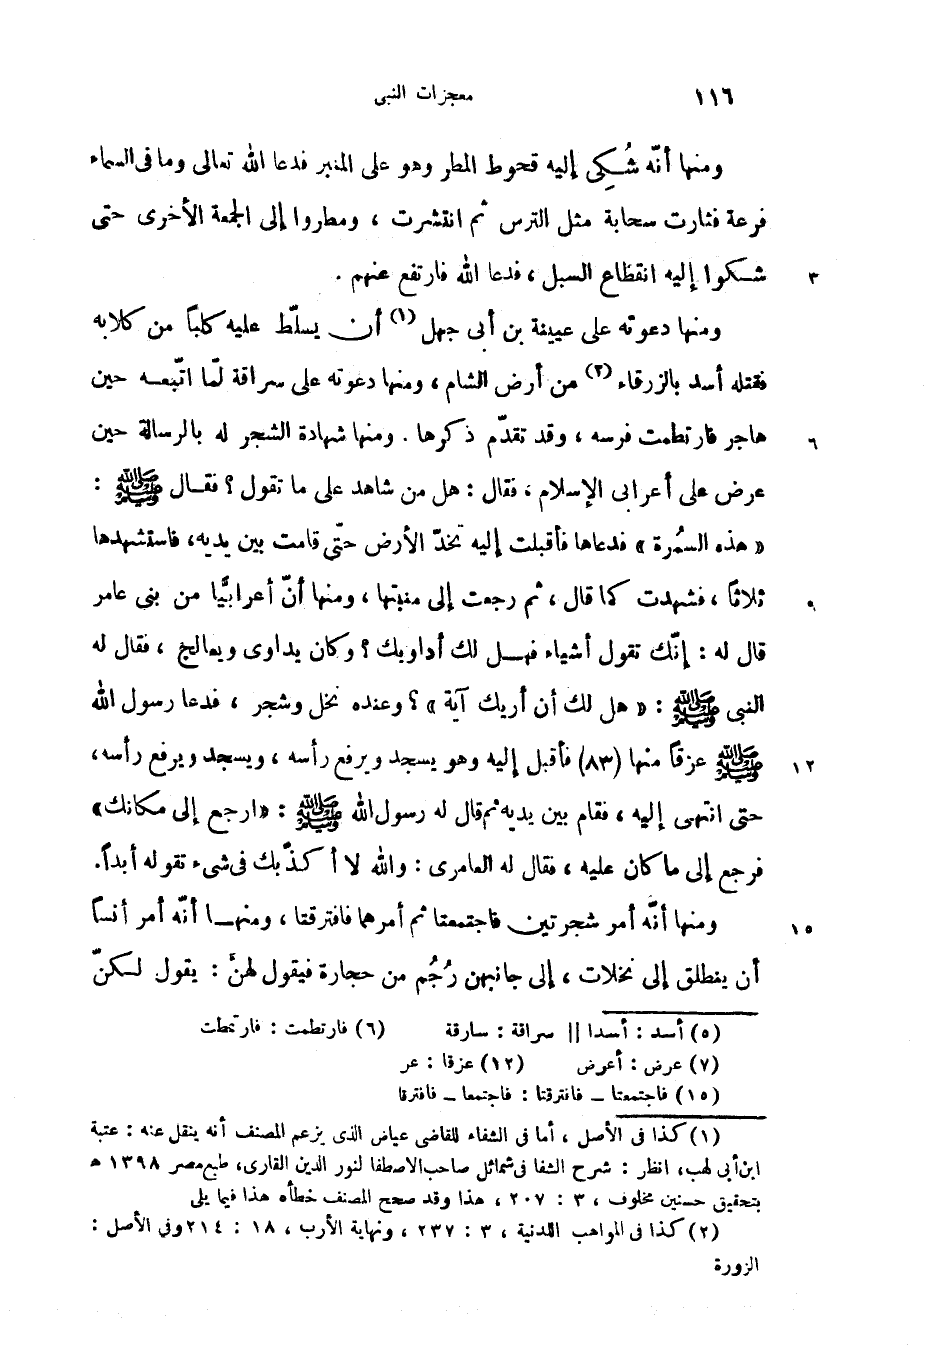 ١١٦ معجزات النبى
ومنها أنّه شُكِى إليه قحوط المطر وهو على المنبر فدعا الله تعالى وما فى السماء
قزعة فثارت سحابة مثل الترس ثم انتشرت ، ومطروا إلى الجمعة الأخرى حتى
٣ شكوا إليه انقطاع السبل ، فدعا الله فارتفع عنهم .
ومنها دعوته على عيينة بن أبى جهل (١) أن يسلّط عليه كلباً من كلابه
فقتله أسد بالزرقاء (٢) من أرض الشام ، ومنها دعوته على سراقة لمّا اتّبعه حين
٦ هاجر فارتطمت فرسه ، وقد تقدّم ذكرها . ومنها شهادة الشجر له بالرسالة حين
عرض على أعرابى الإسلام ، فقال : هل من شاهد على ما تقول ؟ فقال ﷺ :
« هذه السمُرة » فدعاها فأقبلت إليه تخدّ الأرض حتّى قامت بين يديه، فاستشهدها
٩ ثلاثاً ، فشهدت كما قال ، ثم رجعت إلى منبتها ، ومنها أنّ أعرابيًّا من بنى عامر
قال له : إنّك تقول أشياء فهل لك أداويك ؟ وكان يداوى ويعالج ، فقال له
النبى ﷺ : « هل لك أن أريك آية » ؟ وعنده نخل وشجر ، فدعا رسول الله
١٢ ﷺ عزقاً منها (٨٣) فأقبل إليه وهو يسجد ويرفع رأسه ، ويسجد ويرفع رأسه،
حتى انتهى إليه ، فقام بين يديه ثم قال له رسول الله ﷺ : «ارجع إلى مكانك»
فرجع إلى ما كان عليه ، فقال له العامرى : والله لا أكذّبك فى شىء تقوله أبداً.
١٥ ومنها أنّه أمر شجرتين فاجتمعتا ثم أمرهما فافترقتا ، ومنها أنّه أمر أنساً
أن ينطلق إلى نخلات ، إلى جانبهن رُجُم من حجارة فيقول لهنّ : يقول لكنّ
(٥) أسد : أسدا || سراقة : سارقة (٦) فارتطمت :
(٧) عرض : أعرض (١٢) عزقا : عر
(١٥) فاجتمعتا ــ فافترقتا : فاجتمعا ــ فافترقا
(١) كذا فى الأصل ، أما فى الشفاء للقاضى عياض الذى يزعم المصنف أنه ينقل عنه : عتبة
ابن أبى لهب، انظر : شرح الشفا فى شمائل صاحب الاصطفا لنور الدين القارى، طبع مصر ١٣٩٨ ه
بتحقيق حسنين مخلوف ، ٣ : ٢٠٧ ، هذا وقد صحح المصنف خطأه هذا فيما يلى
(٢) كذا فى المواهب اللدنية ، ٣ : ٢٣٧ ، ونهاية الأرب ، ١٨ : ٢١٤ وفى الأصل :
الزورة